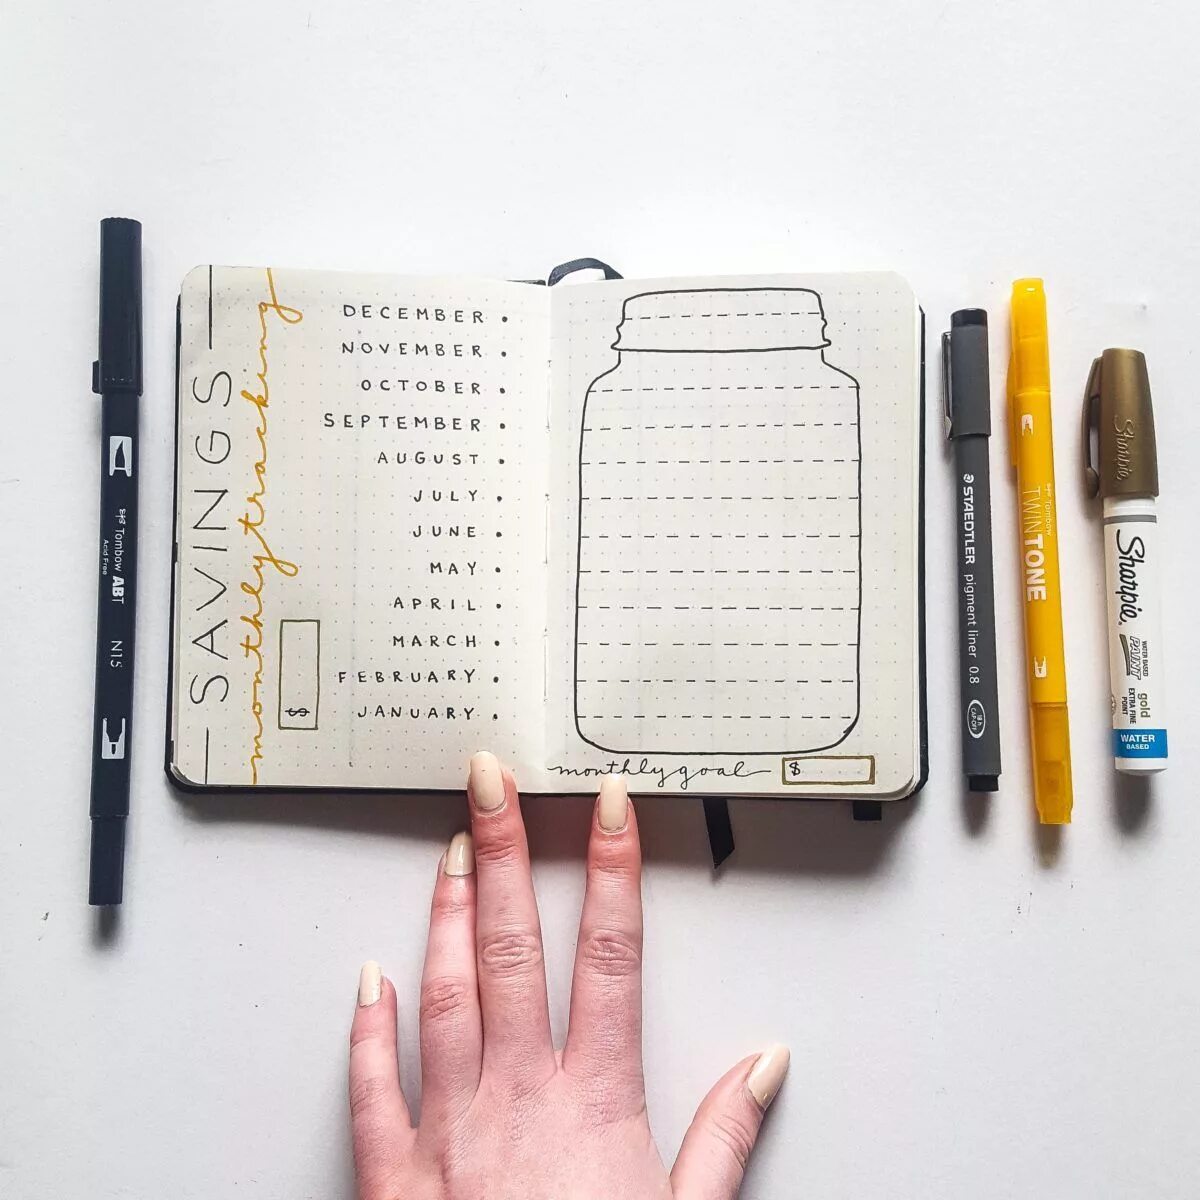 SAVINGS
monthly tracking
$
DECEMBER
NOVEMBER
OCTOBER
SEPTEMBER
AUGUST
JULY
JUNE
MAY
APRIL
MARCH
FEBRUARY
JANUARY
monthly goal
$
Tombow ABT
Acid Free
N15
STAEDTLER pigment liner 0.8
CAP-OFF
Tombow
TWINTONE
Sharpie
Sharpie.
WATER BASED
PAINT
gold
EXTRA FINE
POINT
WATER
BASED